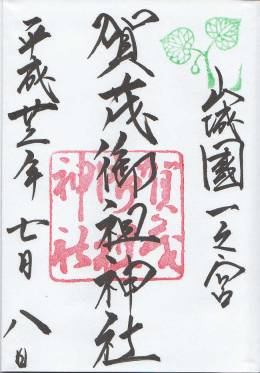 山城國一之宮
賀茂御祖神社
平成廿三年七月八日